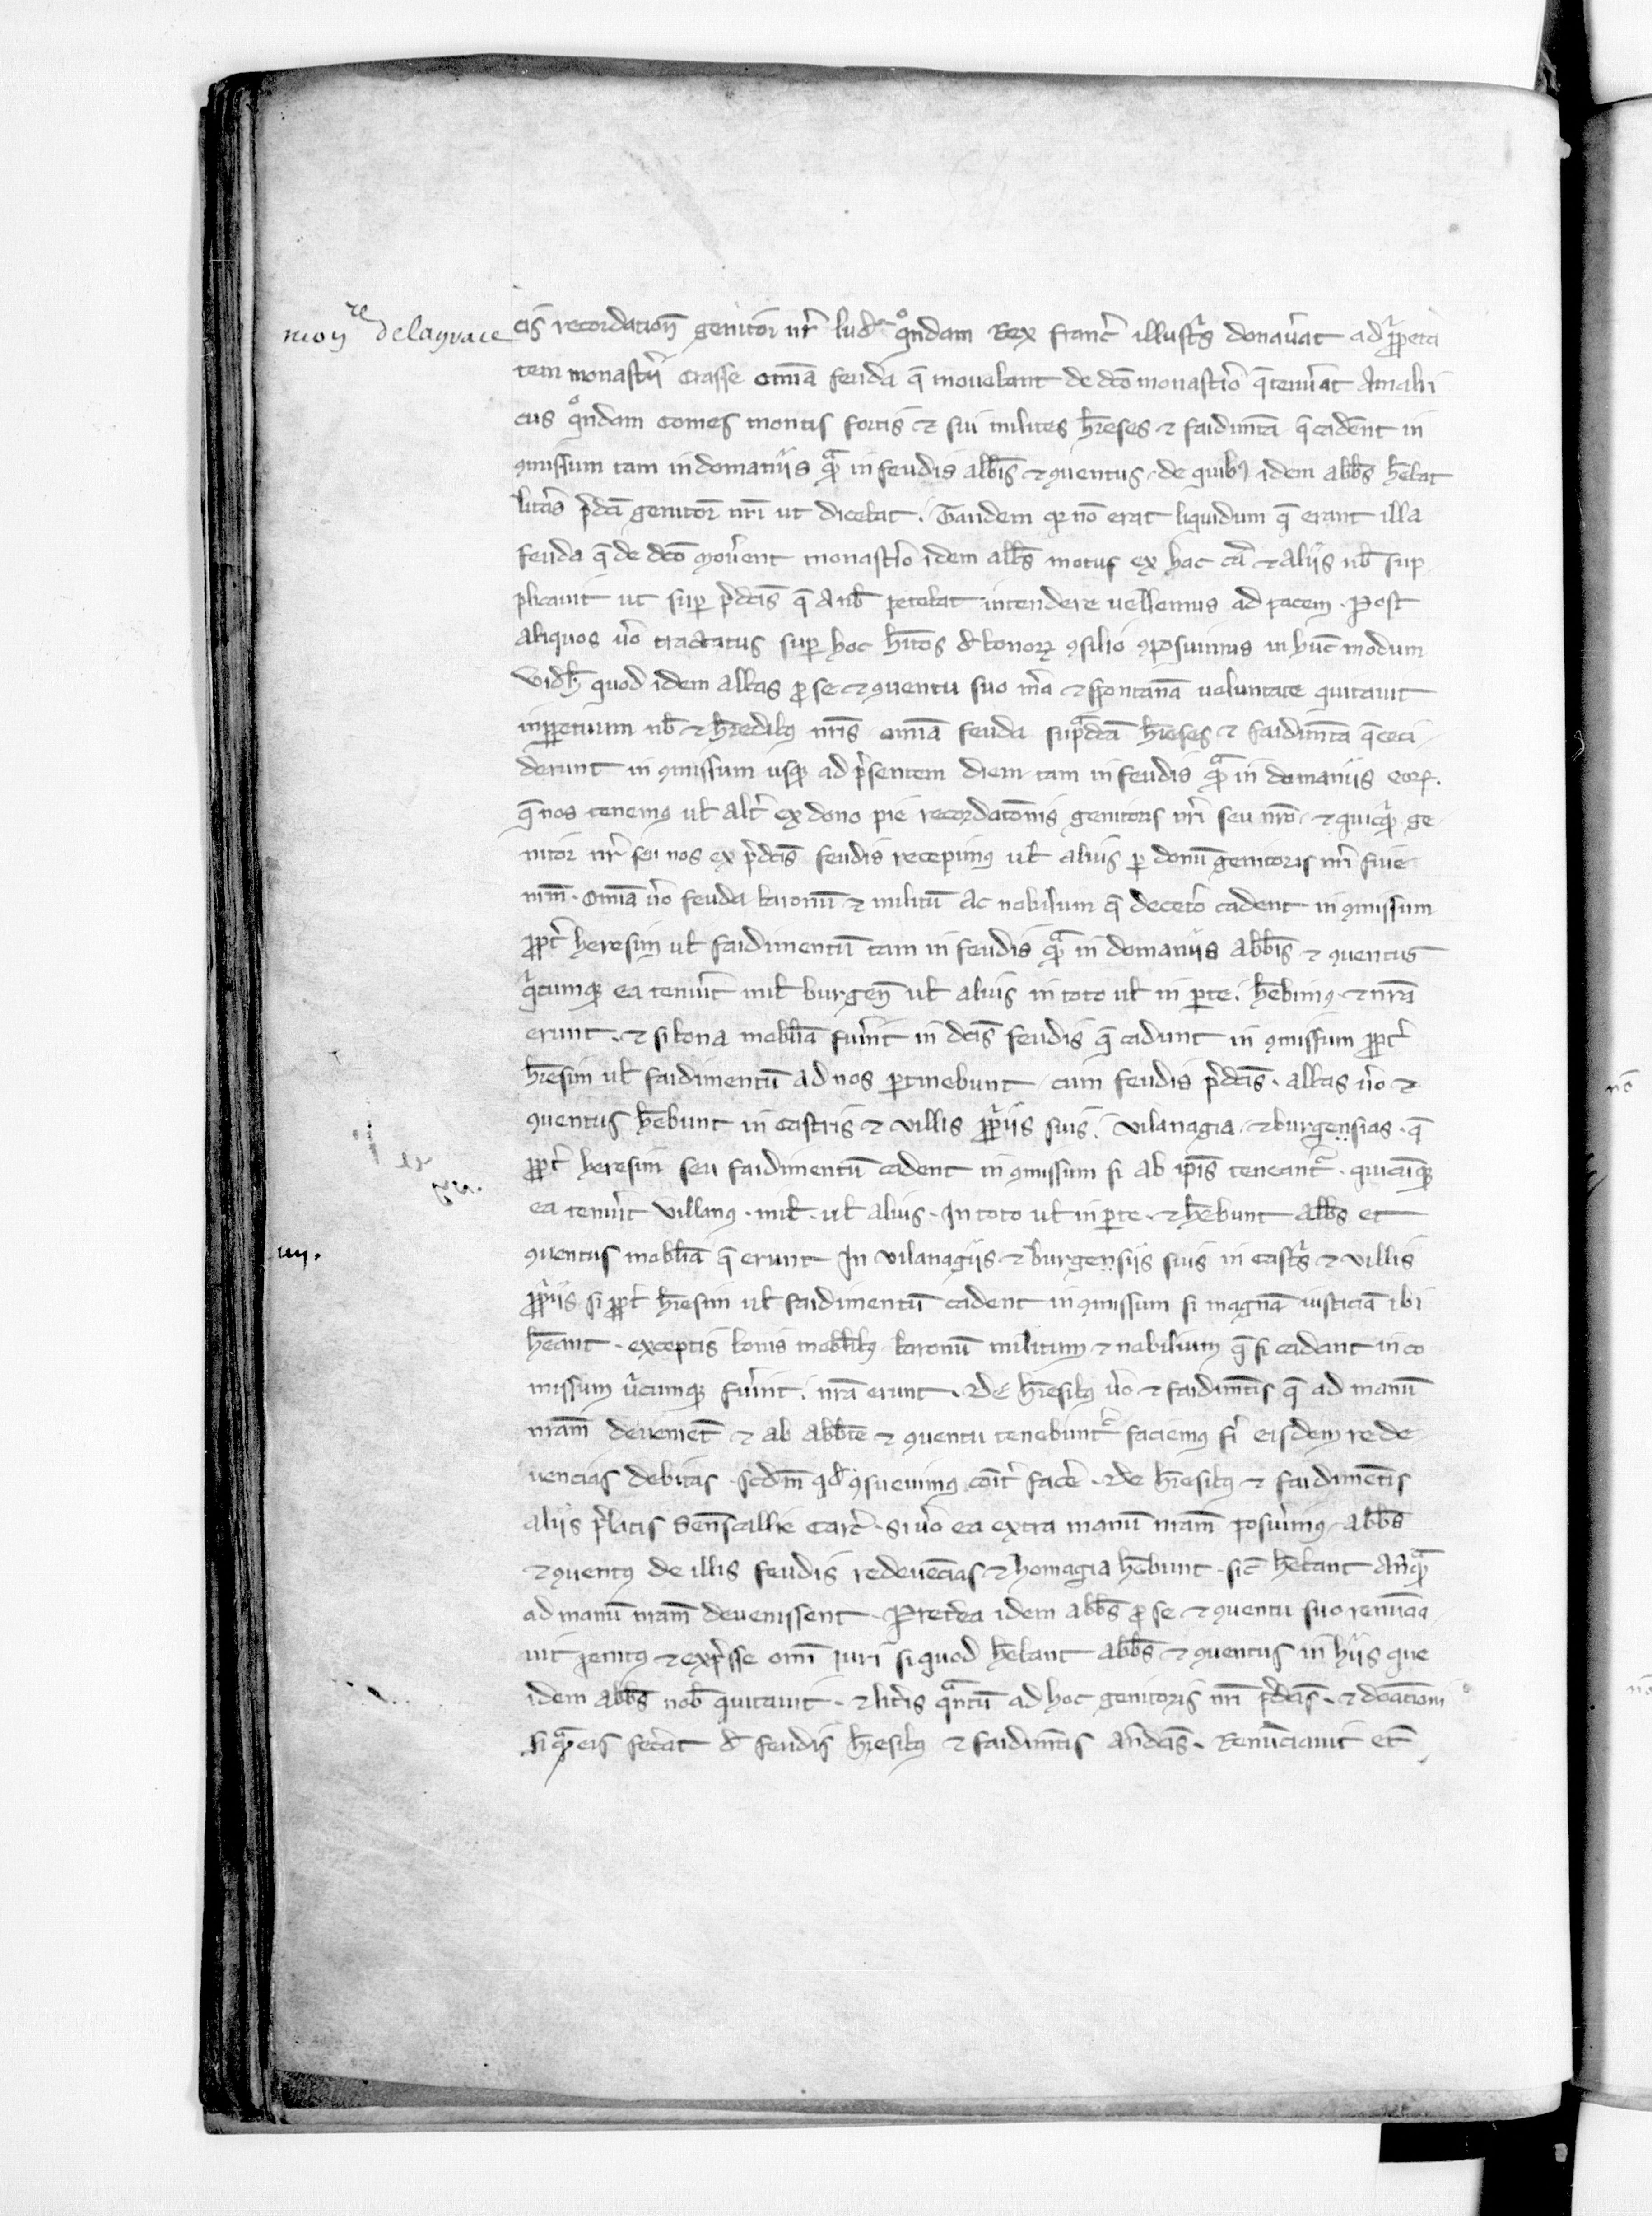 monre delagrace
cis recordation̄ genitor nr̄ lud᷒ qͦndam Rex franc̄ illustͥs donau̾at ad ꝓpͥeta
tem monastῑi Crasse om̄ia feuda q̄ mouebant de dc̄o monast̾io q̄ tenu̾at Amalri
cus qͦndam Comes montis fortis ⁊ sui milites h̄reses ⁊ faidim̄ta q̄ cad̾ent in
ꝯmissum tam in domaniis qᷓ in feudis abb̄is ⁊ ꝯuentus. de quibꝰ idem abb̄s h̄ebat
litt̾as p̄dc̄i genitor̄ nr̄i ut dicebat. Tandem qꝛ nō erat liquidum q̄ erant illa
feuda q̄ de dc̄o mou̾ent monast̾io idem abb̄s motus ex hac cā ⁊ aliis nob̄ sup
plicauit ut sup̱ p̄dc̄is q̄ a nob̄ petebat intendere uellemus ad pacem. Post
aliquos ūo tractatus sup̱ hoc h̄itos de bonoꝝ ꝯsilio ꝯposuimus in hūc modum
videlꝫ quod idem abbas ꝓ se ⁊ ꝯuentu suo m̾a ⁊ spontanea uoluntate quitauit
inp̱petuum nob̄ ⁊ h̄redibꝰ nr̄is om̄ia feuda sup̾dc̄a h̄reses ⁊ faidim̄ta q̄ ceci
derunt in ꝯmissum usqꝫ ad p̄sentem diem tam in feudis qᷓ in domaniis eoꝝ.
q̄ nos tenemꝰ uł alt̾ ex dono pie recordac̄onis genitoris nr̄i seu nr̄o ⁊ quicqᷓ ge
nitor nr̄ seu nos ex p̄dc̄is feudis recepimꝰ uł alius p̱ donū genitoris nr̄i siue
nr̄m. Om̄ia ūo feuda baronū ⁊ militū ac nobilium q̄ decet̾o cadent in ꝯmissum
ꝓpt̾ heresim uł faidimentū tam in feudis qᷓ in domaniis abb̄is ⁊ ꝯuentus
qͥcumqꝫ ea tenu̾it mił burgen̄ uł alius in toto uł in p̱te. h̄ebimꝰ ⁊ nr̄a
erunt. ⁊ si bona mobilia fu̾int in dc̄is feudis q̄ cadunt in ꝯmissum ꝓpt̾
h̄resim uł faidimentū ad nos p̱tinebunt cum feudis p̄dc̄is. abbas ūo ⁊
ꝯuentus h̄ebunt in castris ⁊ villis ꝓpͥis suis. vilanagia ⁊ burgensias. q̄
ꝓpt̾ heresim seu faidimentū cadent in ꝯmissum si ab ip̄is teneant᷑. quicūqꝫ
ea tenu̾it villanꝰ. mił. uł alius. In toto uł in p̱te. ⁊ h̄ebunt abb̄s et
iiij.
ꝯuentus mobilia q̄ erunt In vilanagiis ⁊ burgensiis suis in castͥs ⁊ villis
ꝓpͥis si ꝓpt̾ h̄resim uł faidimentū cadent in ꝯmissum si magnā iusticiā ibi
h̄eant. exceptis bonis mobilibꝰ baronū militum ⁊ nobilium q̄ si cadant in co
missum u̾cumqꝫ fu̾int. nr̄a erunt. de h̄resibꝰ ūo ⁊ faidim̄tis q̄ ad manū
nr̄am deuenient̄ ⁊ ab abb̄te ⁊ ꝯuentu tenebunt᷑ faciemꝰ fi̾ eisdem rede
uencias debitas. scdm̄ qd̄ ꝯsueuimꝰ coīt̾ fac̾e. de h̄resibꝰ ⁊ faidimentis
aliis p̄latis Senescallie Carc̄. Si ūo ea extra manū nr̄am posu̾imꝰ abb̄s
⁊ ꝯuentꝰ de illis feudis redeuēcias ⁊ homagia h̄ebunt. sic̄ h̄ebant an̄qᷓ
ad manū nr̄am deuenissent. Pret̾ea idem abb̄s ꝓ se ⁊ ꝯuentu suo renūcia
uit penitꝰ ⁊ exp̄sse om̄i iuri si quod h̄ebant abb̄s ⁊ ꝯuentus in hiis que
idem abb̄s nob̄ quitauit. ⁊ litt̾is qᷓntū ad hoc genitoris nr̄i p̄dc̄is. ⁊ donationi
si qᷓ eis fec̾at de feudis h̄resibꝰ ⁊ faidim̄tis an̄dc̄is. Renūciauit et̄